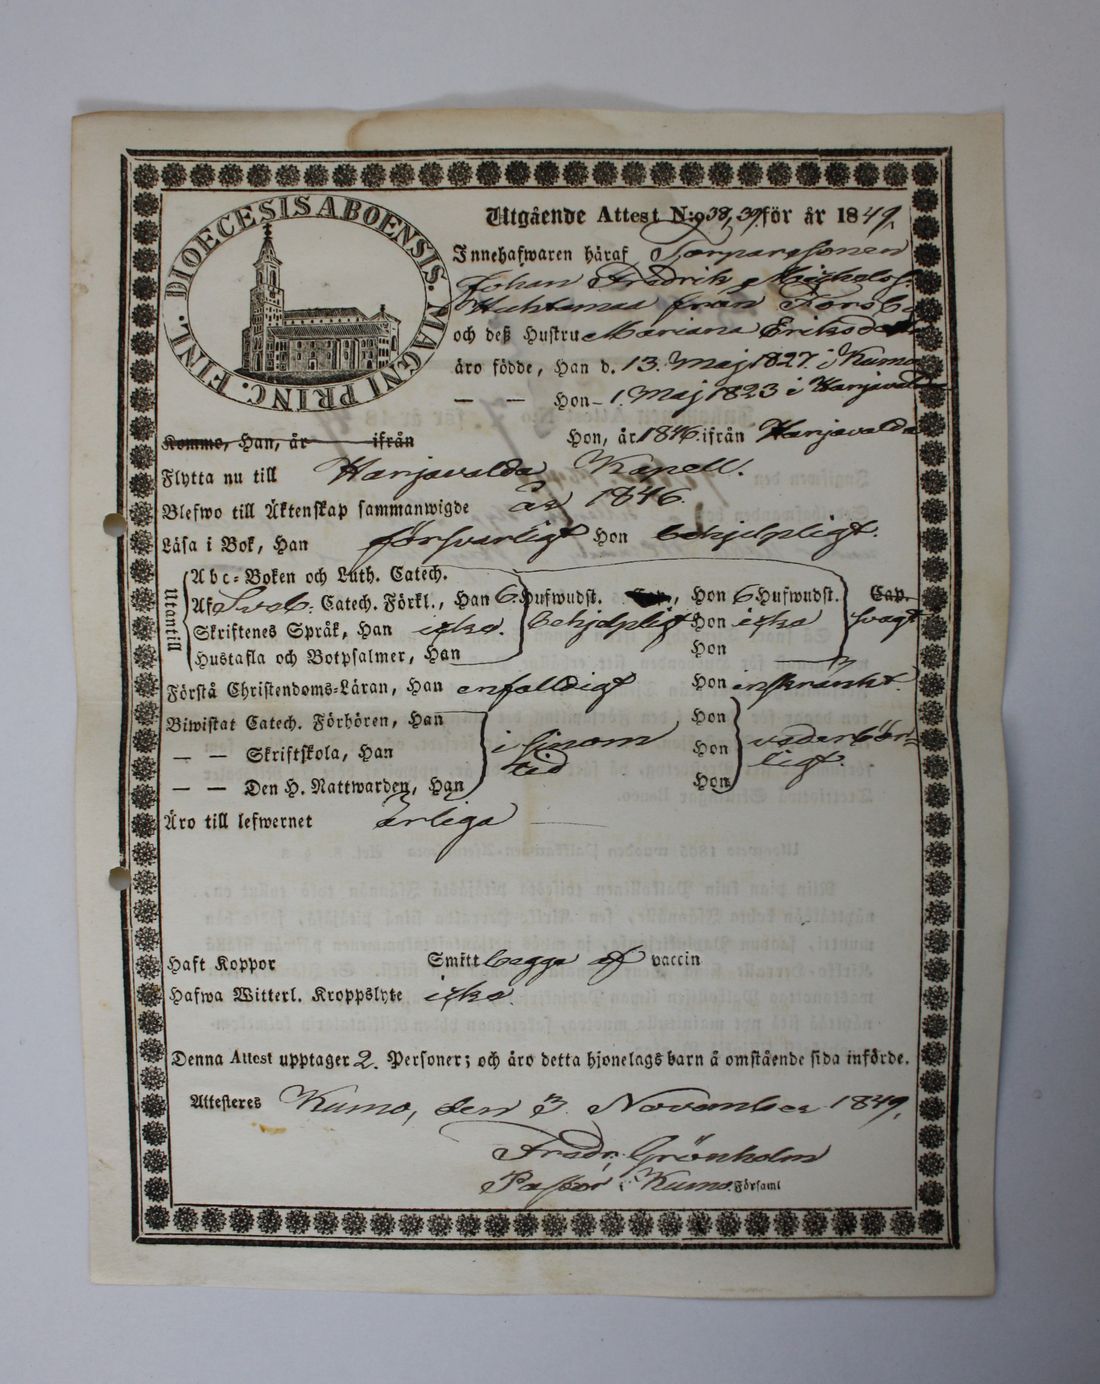 DIOECESIS ABOENSIS. MAGNI PRINC. FINL.
Utgående Attest N:o 38, 39 för år 1849.
Innehafwaren häraf Torparesonen
Johan Fredrik
från
och deß Hustru Mariana Eriksdotter
äro födde, Han d. 13. Maj 1827. i Kumo
— — Hon — 1 Maj 1823 i Harjavalda
Kommo, Han, år ifrån Hon, år 1846. ifrån Harjavalda
Flytta nu till Harjavalda Kapell.
Blefwo till Äktenskap sammanwigde år 1846.
Läsa i Bok, Han försvarligt Hon behjelpligt.
Utantill
Abc-Boken och Luth. Catech.
Af Sveb. Catech. Förkl., Han 6. Hufwudst. Cap., Hon 6 Hufwudst. Cap.
Skriftenes Språk, Han icke. behjelpligt Hon icke svagt
Hustafla och Botpsalmer, Han Hon
Förstå Christendoms-Läran, Han enfalldigt Hon inskränkt.
Biwistat Catech. Förhören, Han Hon
— — Skriftskola, Han i sinom tid Hon vederbörligt.
— — Den H. Nattwarden, Han Hon
Äro till lefwernet ärliga
Haft Koppor Smitt begge af vaccin
Hafwa Witterl. Kroppslyte icke
Denna Attest upptager 2. Personer; och äro detta hjonelags barn å omstående sida införde.
Attesteres Kumo, den 3. November 1849.
Fredr. Grönholm
Pastor i Kumo Församl